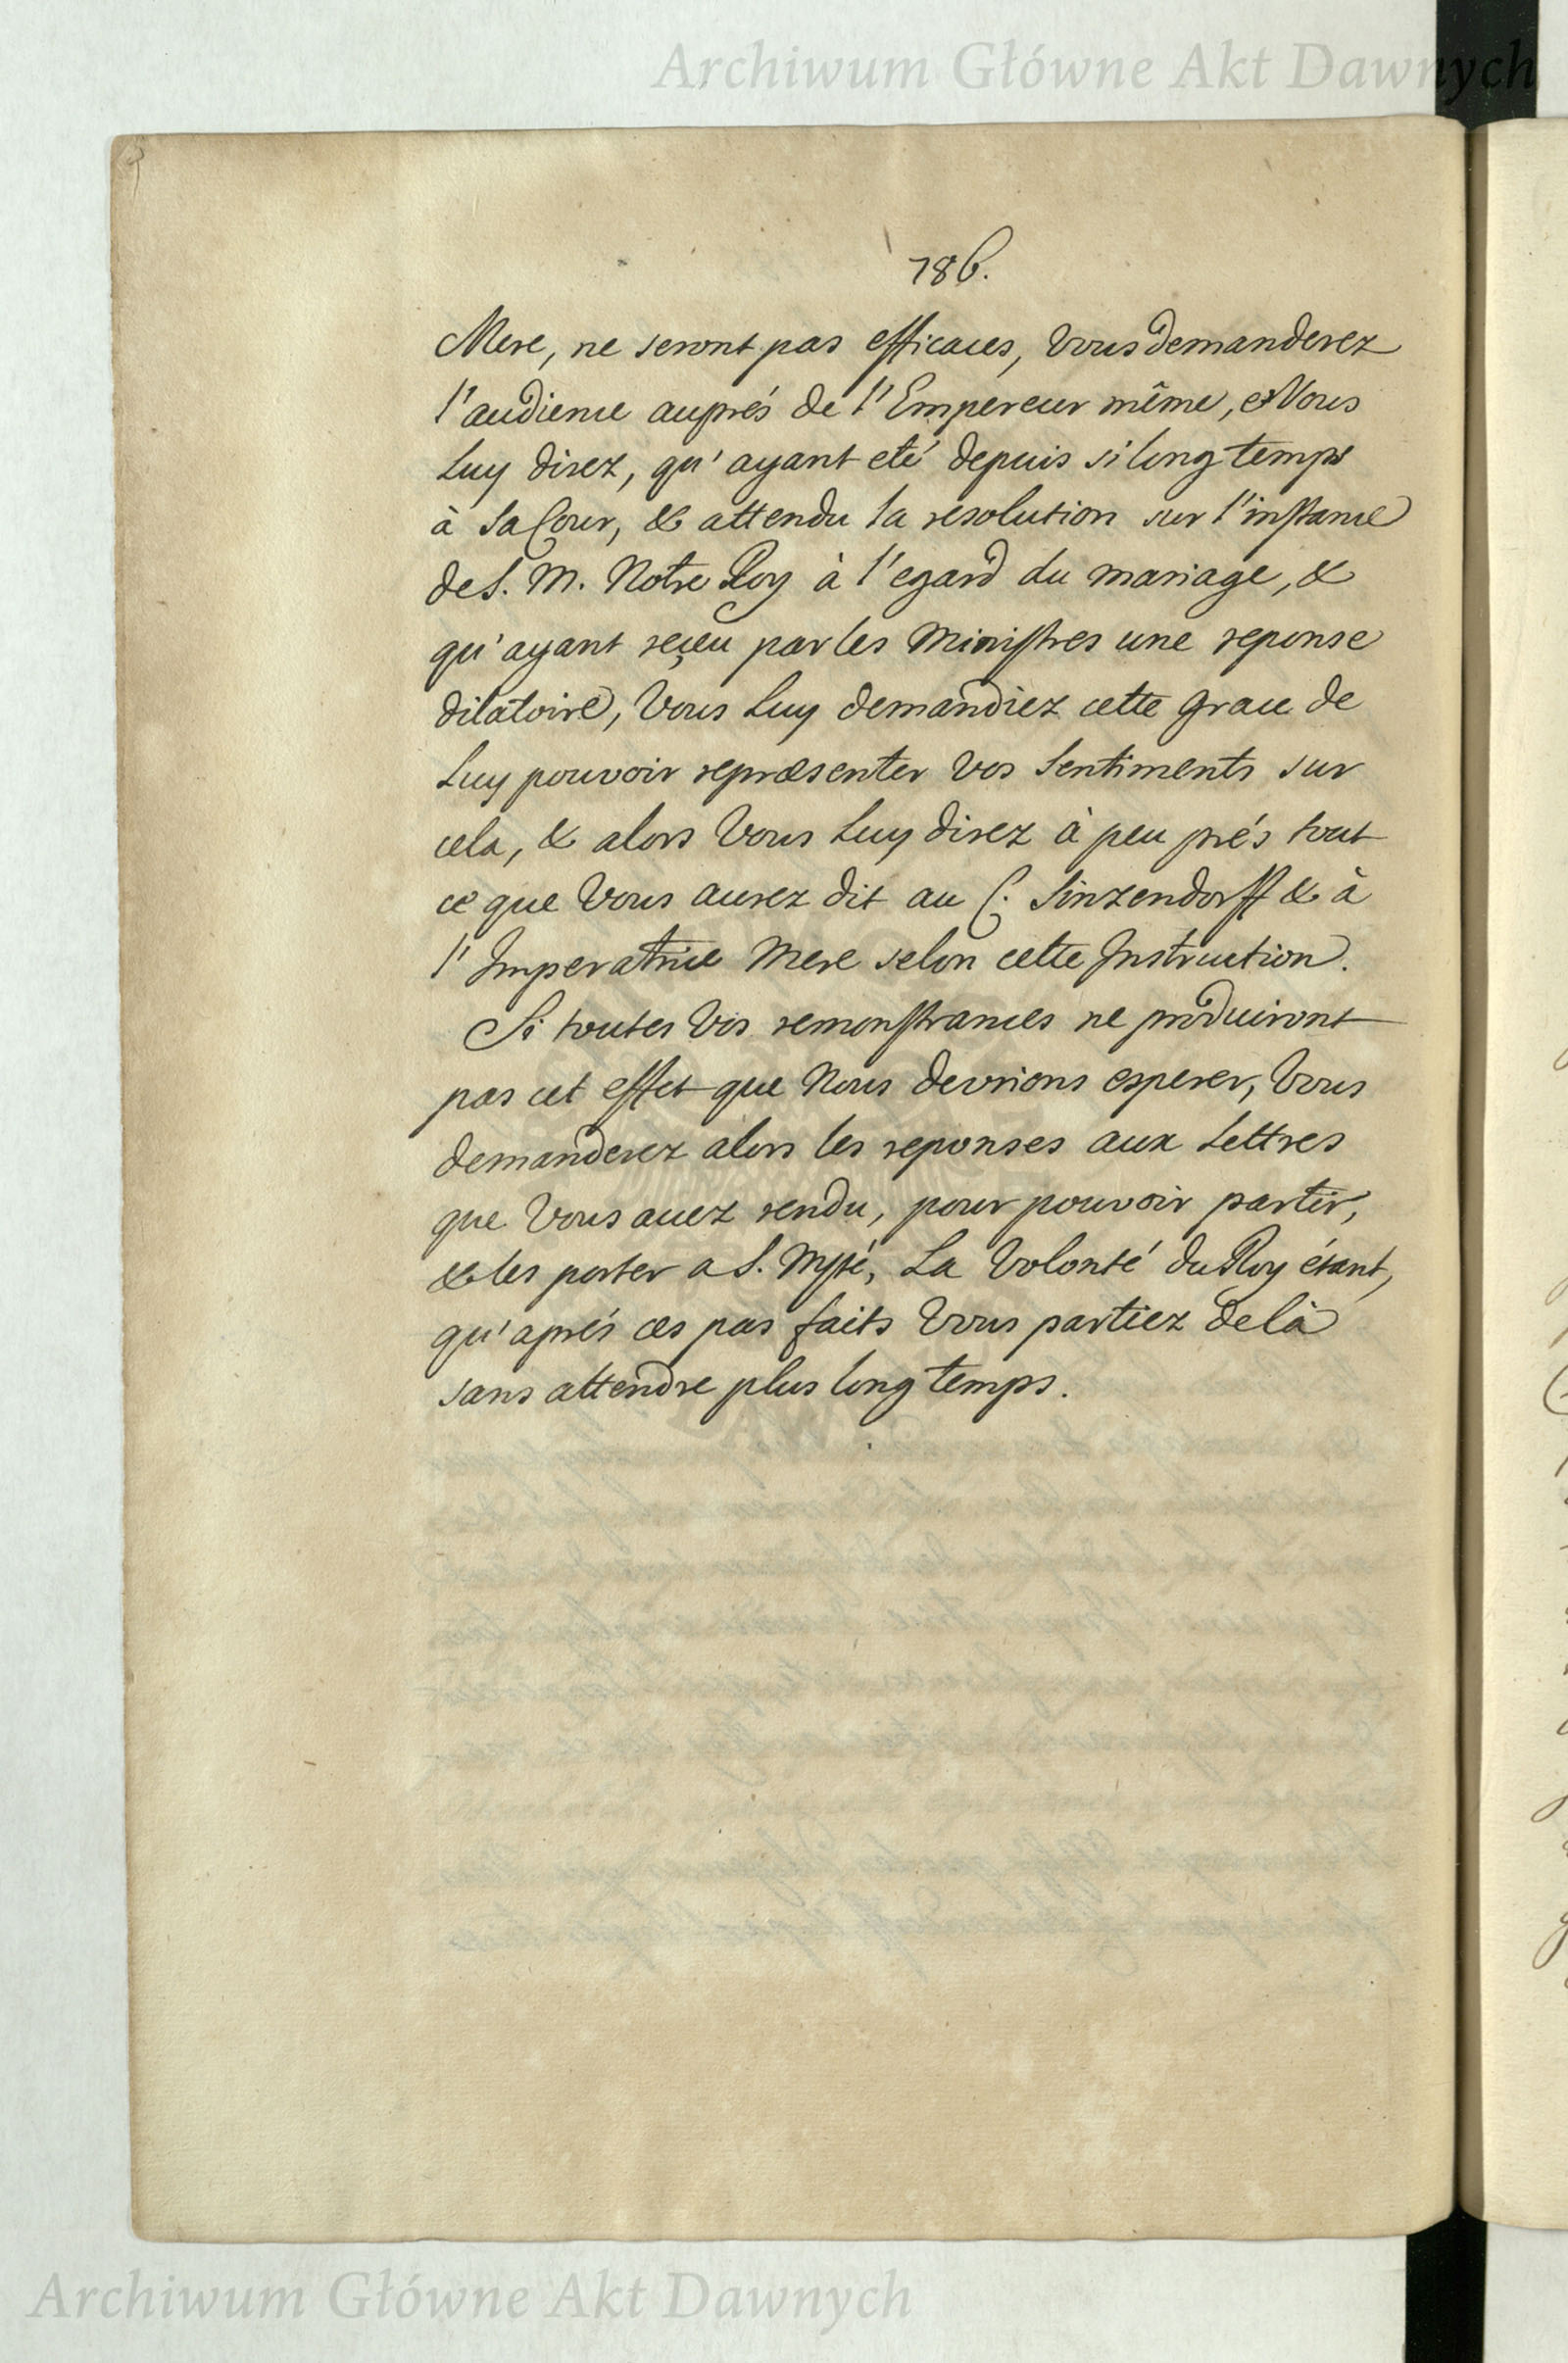 Archiwum Główne Akt Dawnych
786.
Mere, ne seront pas efficaces, Vous demanderez
l'audience auprés de l'Empereur même, et Vous
Luy direz, qu'ayant eté depuis si long temps
à Sa Cour, & attendu la resolution sur l'instance
de S. M. Notre Roy à l'egard du mariage, &
qu'ayant reçeu par les Ministres une reponse
dilatoire, Vous Luy demandiez cette grace de
Luy pouvoir repræsenter Vos Sentiments sur
cela, & alors Vous Luy direz à peu prés tout
ce que Vous aurez dit au C. Sinzendorff & à
l'Imperatrice Mere selon cette Instruction.
Si toutes Vos remonstrances ne produiront
pas cet effet que Nous devrions esperer, Vous
demanderez alors les reponses aux Lettres
que Vous avez rendu, pour pouvoir partir,
& les porter a S. Mjté, La Volonté du Roy étant,
qu'aprés ces pas faits Vous partiez de là
sans attendre plus long temps.
Archiwum Główne Akt Dawnych